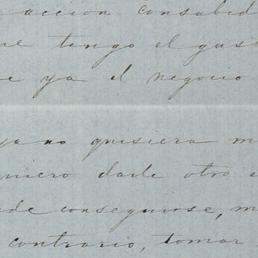 accion consabid
me tengo el gust
e ya el negocio
ya no quisiera m
quiero darle otro
de conseguirse, m
contrario, tomar